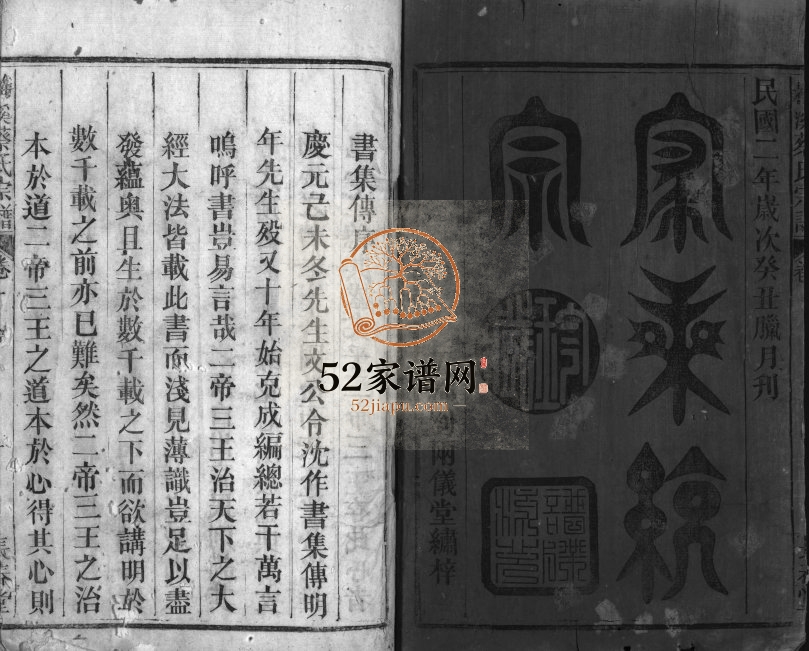 民國二年歲次癸丑臘月刊
家乘統
宗
兩儀堂繡梓
書集傳序
慶元己未冬先生文公令沈作書集傳明
年先生歿又十年始克成編總若干萬言
嗚呼書豈易言哉二帝三王治天下之大
經大法皆載此書而淺見薄識豈足以盡
發蘊奧且生於數千載之下而欲講明於
數千載之前亦已難矣然二帝三王之治
本於道二帝三王之道本於心得其心則
蔡氏宗譜 卷
52家谱网
52jiapu.com